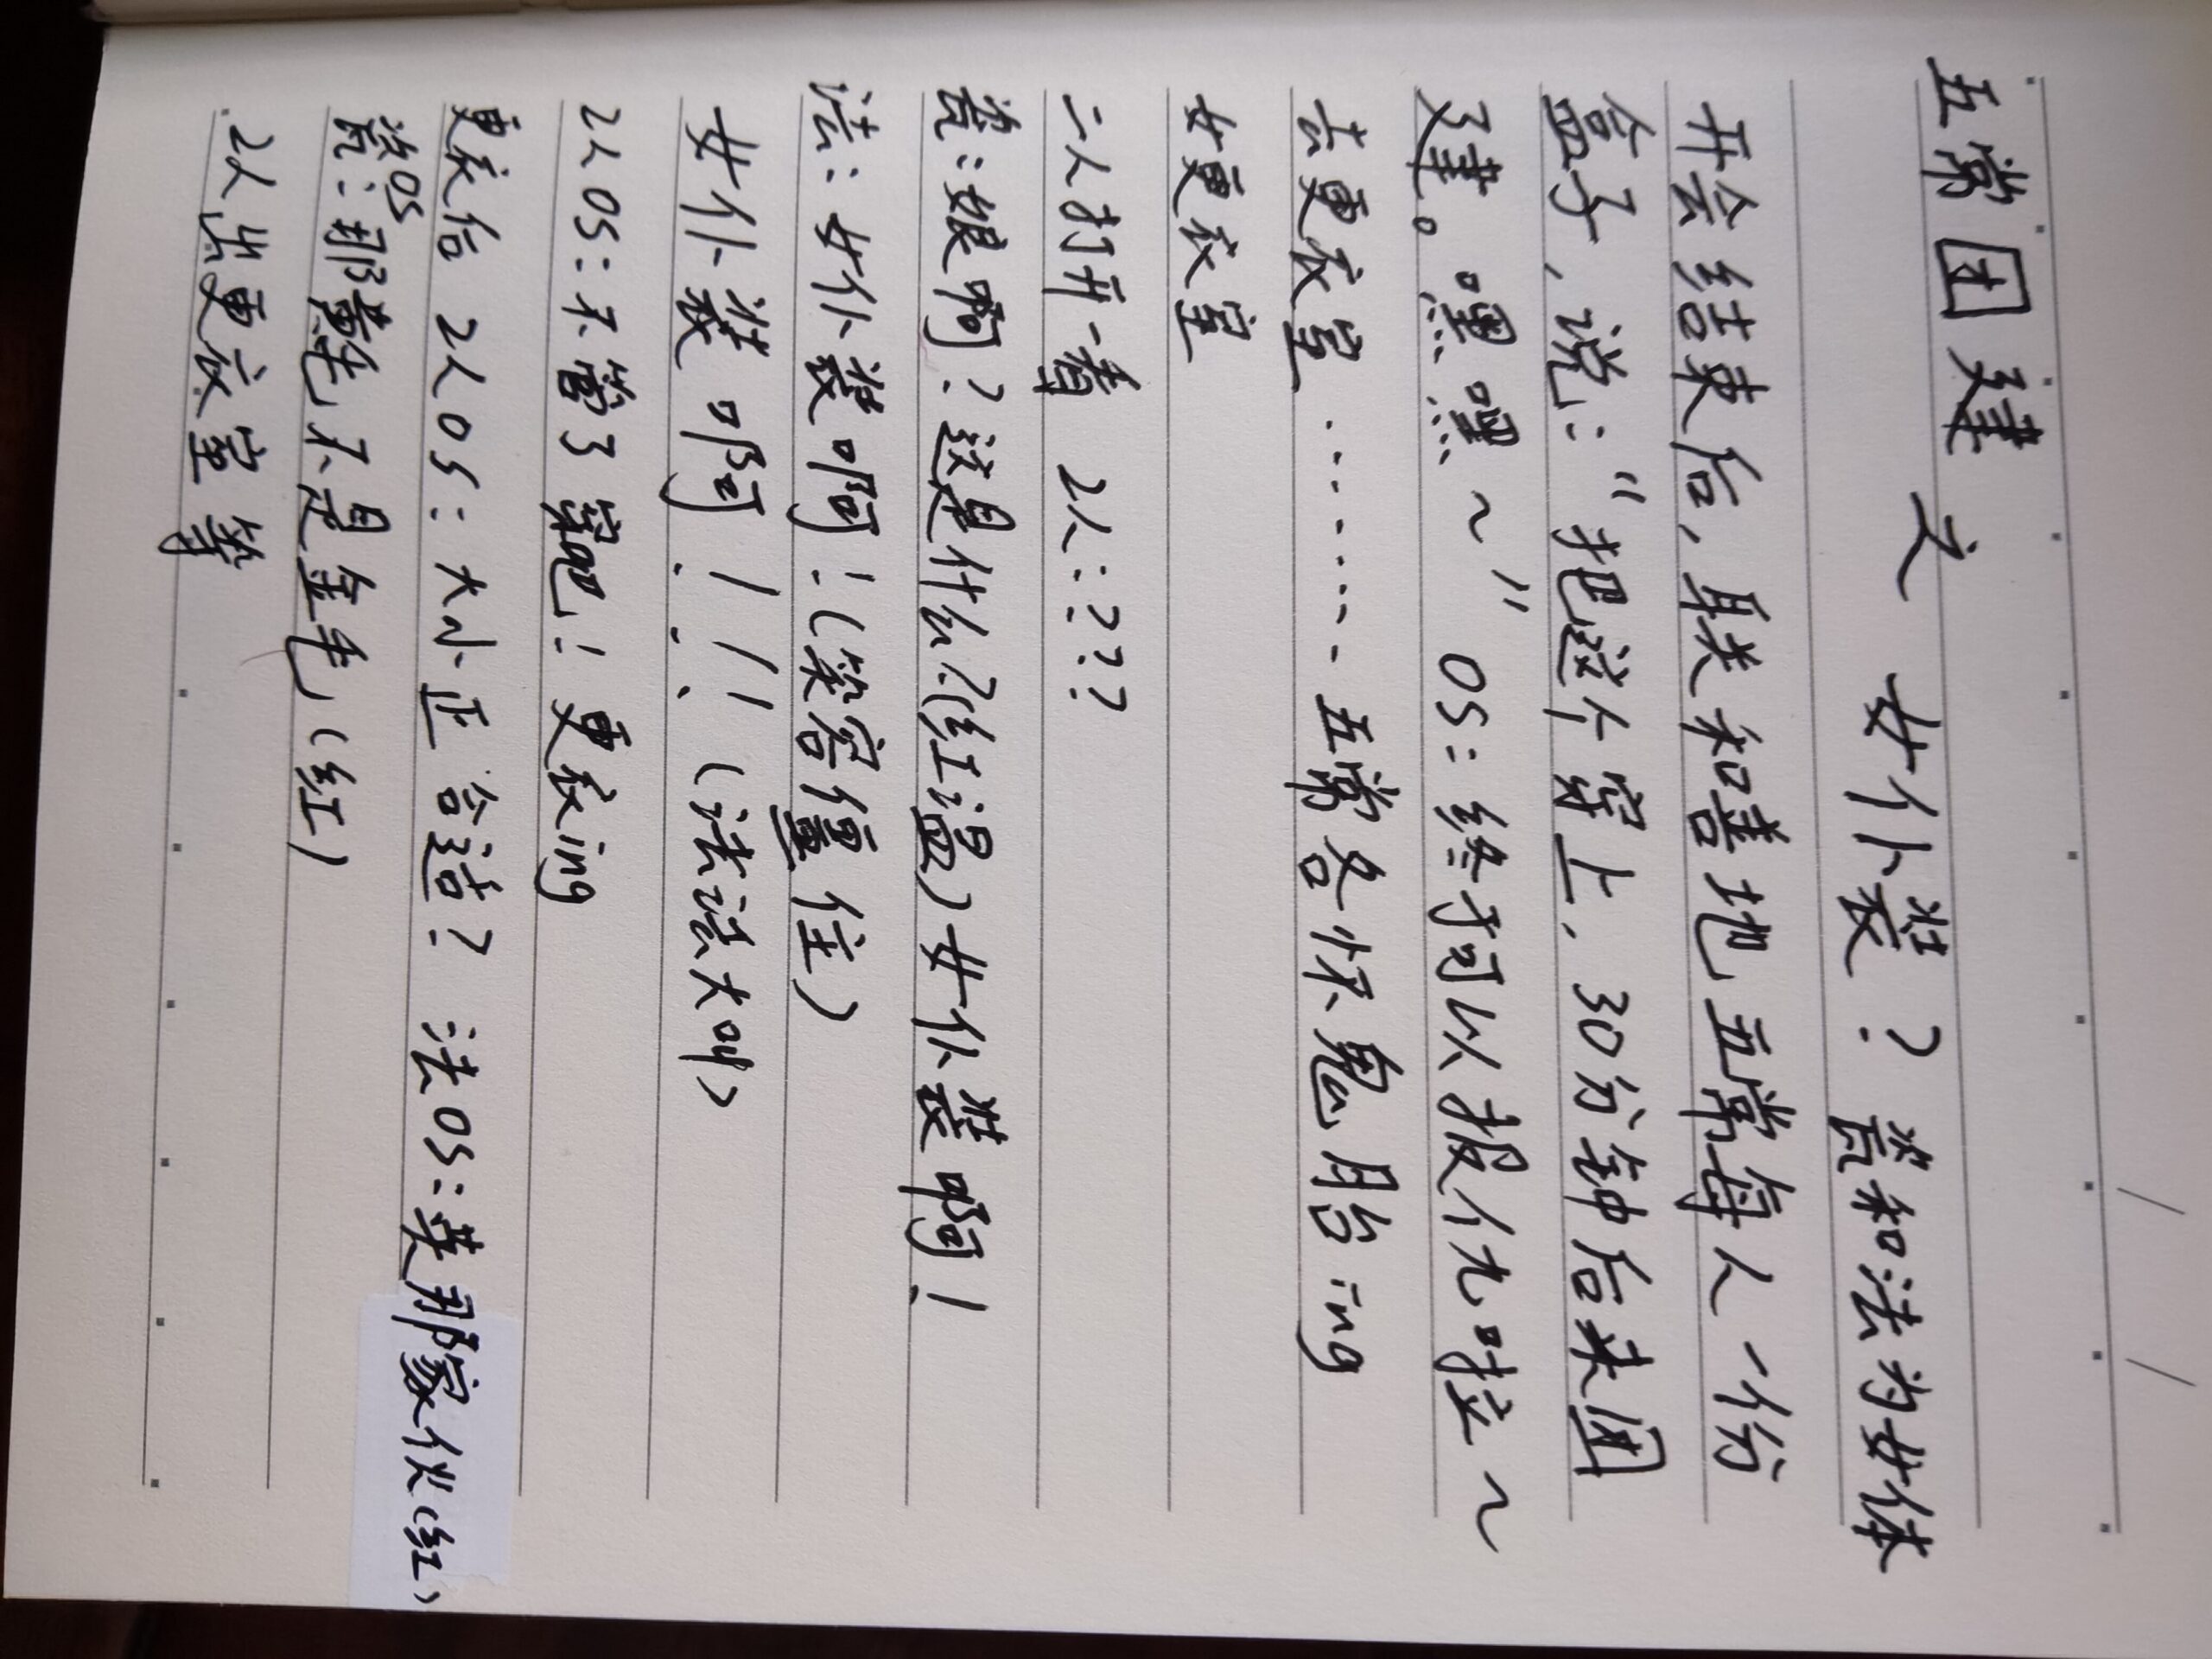 五常团建 之 女仆装？瓷和法为女体
开会结束后，联和善地五常每人一份
盒子，说：“把这个穿上，30分钟后来团
建。嘿嘿～” OS：终于可以报仇啦～
去更衣室………五常各怀鬼胎ing
女更衣室
二人打开一看 2人：？？？
瓷：娘啊？这是什么？(红温)女仆装啊！
法：女仆装啊！（笑容僵住）
女仆装啊！！！（法法大叫）
2人OS：不管了 穿吧！更衣ing
更衣后 2人OS：大小正合适？ 法OS：英那家伙(红)
瓷OS：那黄毛不是金毛(红)
2人出更衣室等